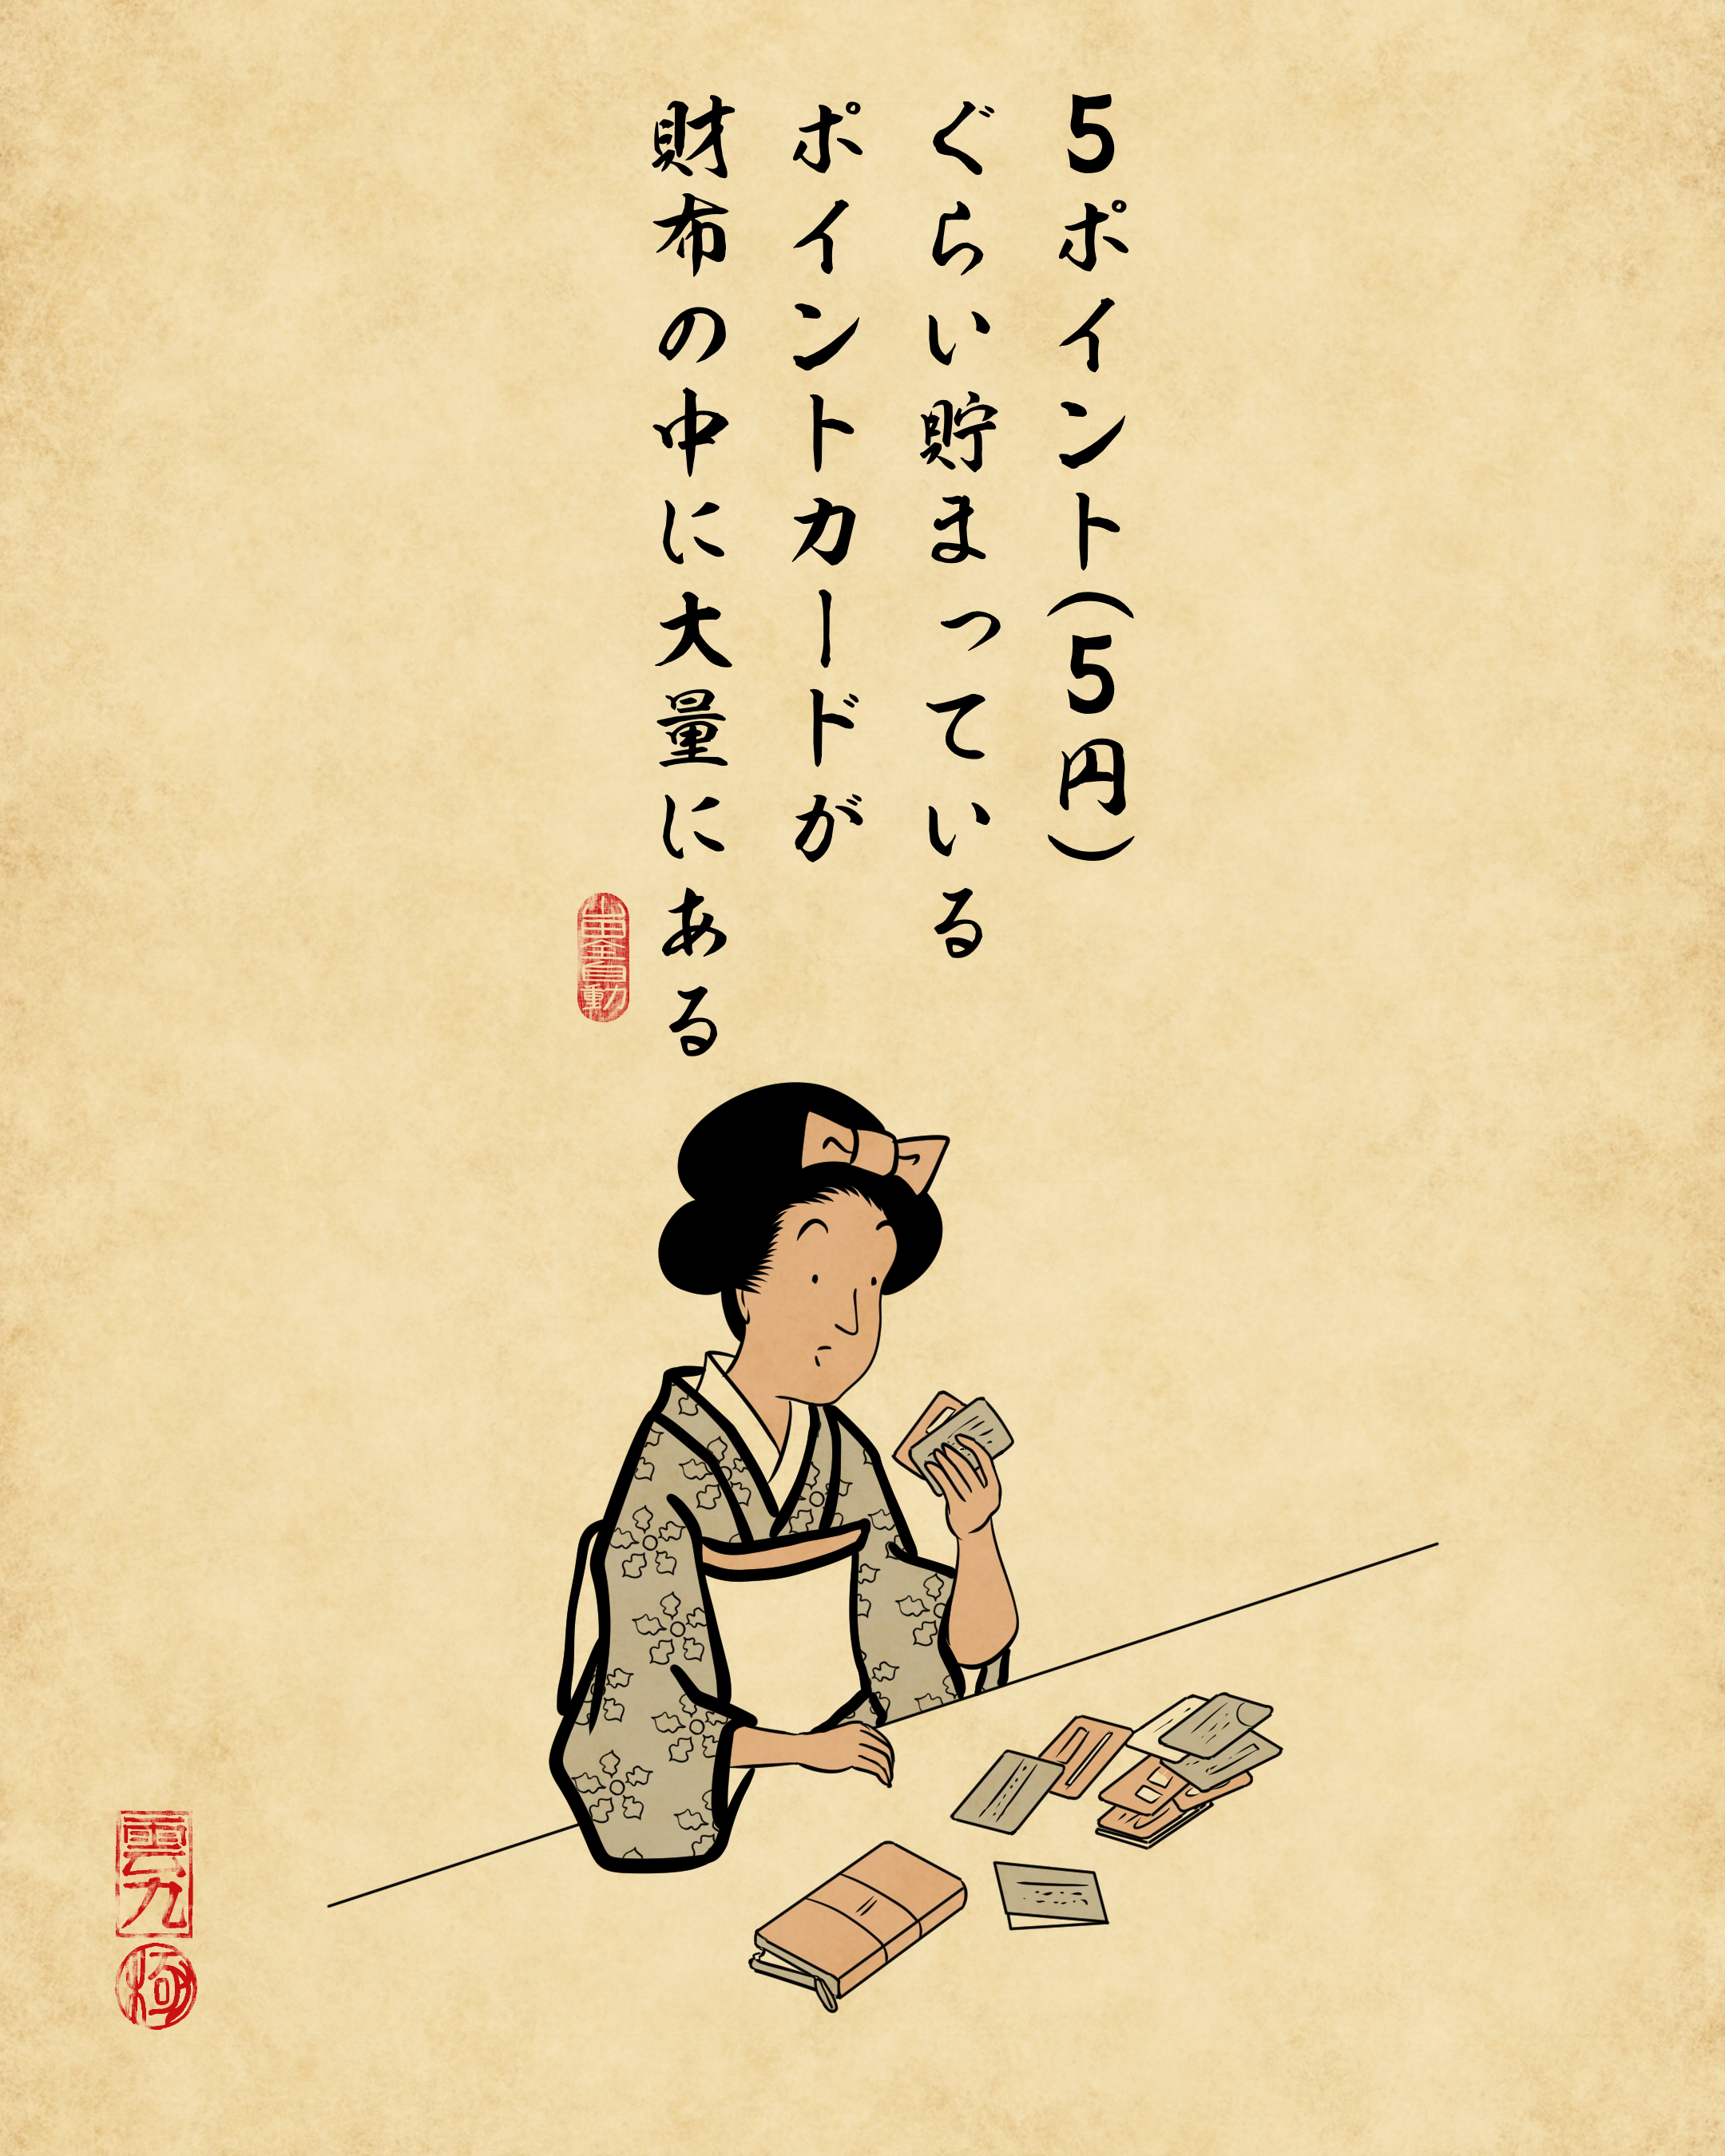 5ポイント(5円)
ぐらい貯まっている
ポイントカードが
財布の中に大量にある
山田全自動
雲九
極